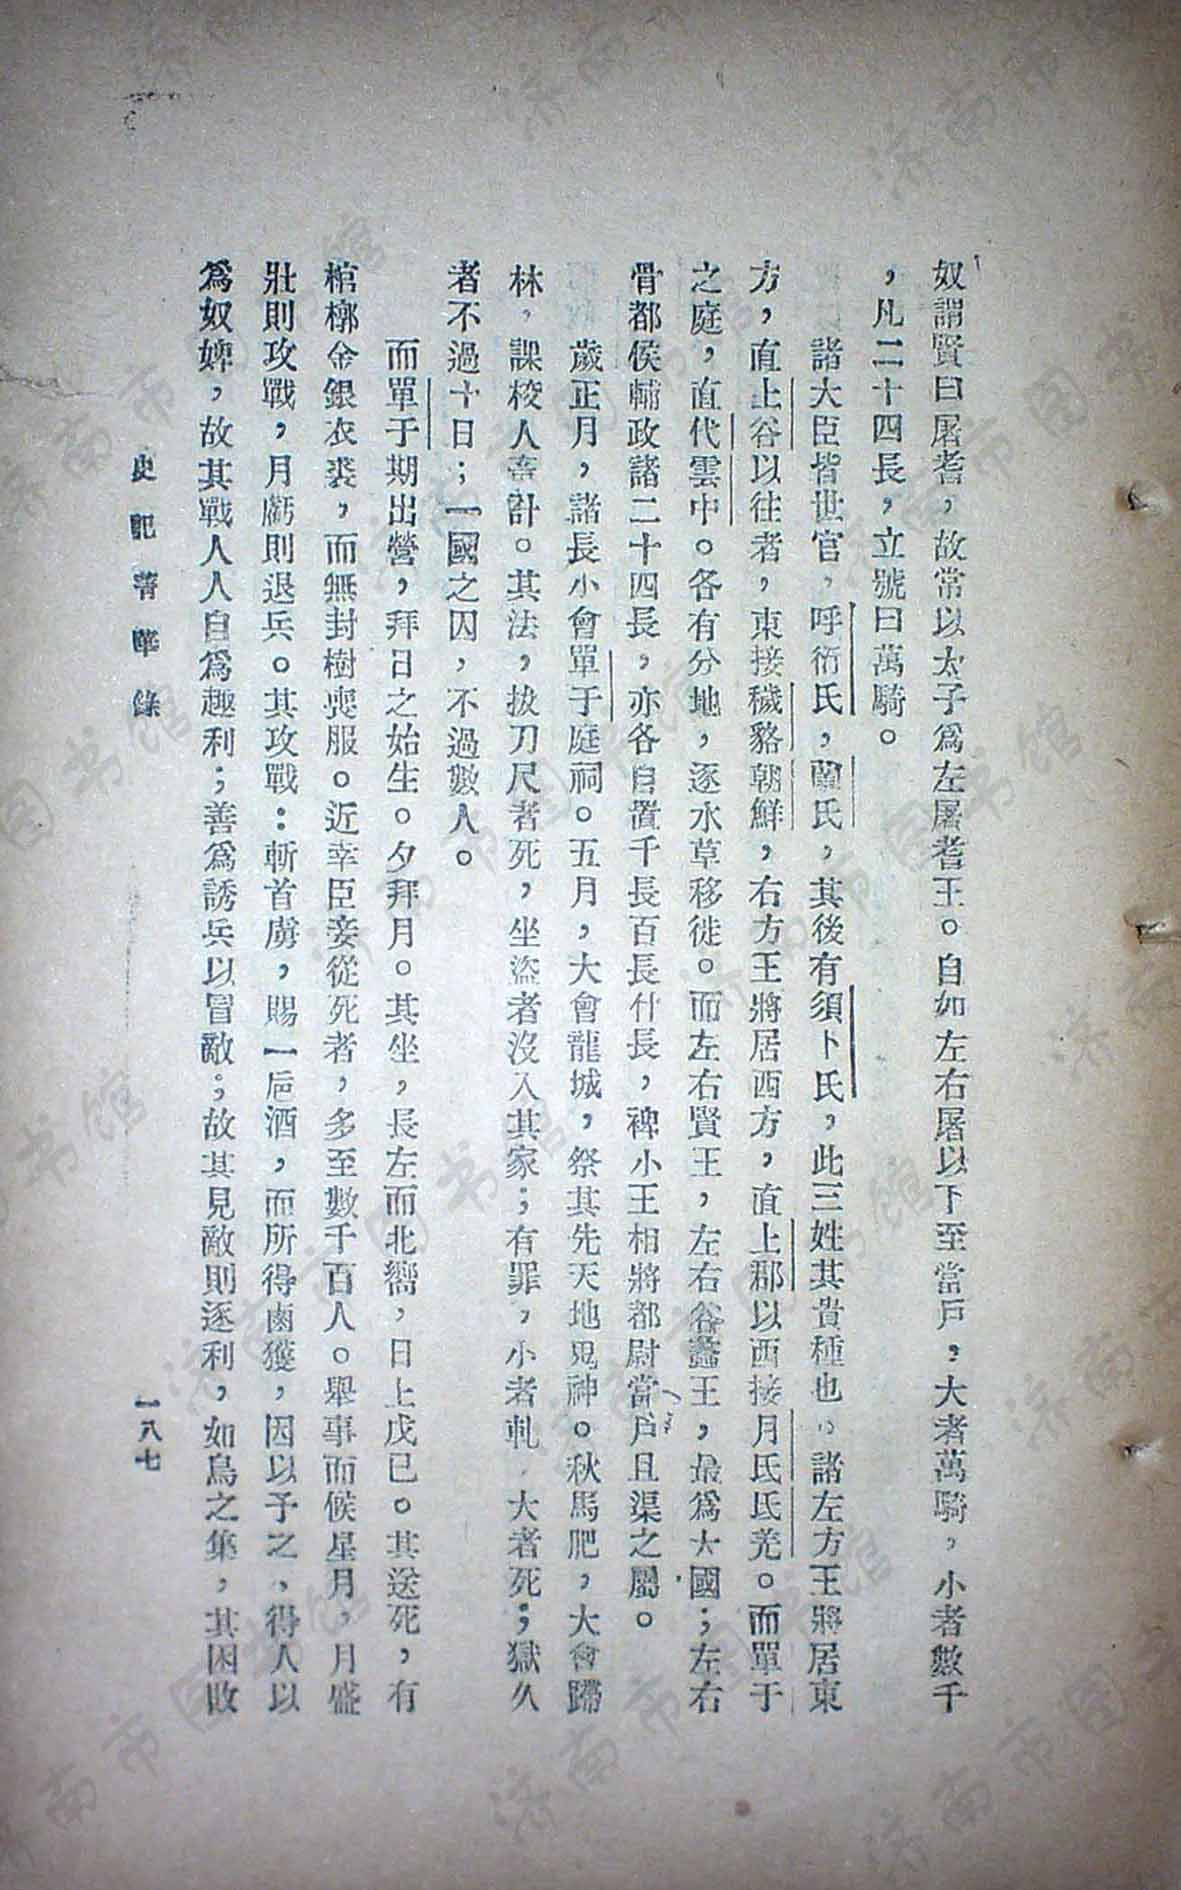 奴謂賢曰屠耆，故常以太子爲左屠耆王。自如左右屠以下至當戶，大者萬騎，小者數千
，凡二十四長，立號曰萬騎。
諸大臣皆世官，呼衍氏，蘭氏，其後有須卜氏，此三姓其貴種也。諸左方王將居東
方，直上谷以往者，東接穢貉朝鮮，右方王將居西方，直上郡以西接月氏氐羌。而單于
之庭，直代雲中。各有分地，逐水草移徙。而左右賢王，左右谷蠡王，最爲大國；左右
骨都侯輔政諸二十四長，亦各自置千長百長什長，裨小王相將都尉當戶且渠之屬。
歲正月，諸長小會單于庭祠。五月，大會龍城，祭其先天地鬼神。秋馬肥，大會蹛
林，課校人畜計。其法，拔刀尺者死，坐盜者沒入其家；有罪，小者軋，大者死；獄久
者不過十日；一國之囚，不過數人。
而單于期出營，拜日之始生。夕拜月。其坐，長左而北嚮，日上戊已。其送死，有
棺槨金銀衣裘，而無封樹喪服。近幸臣妾從死者，多至數千百人。舉事而候星月，月盛
壯則攻戰，月虧則退兵。其攻戰：斬首虜，賜一巵酒，而所得鹵獲，因以予之，得人以
爲奴婢，故其戰人人自爲趣利；善爲誘兵以冒敵；故其見敵則逐利，如鳥之集，其困敗
史記菁華錄
一八七
济南市图书馆